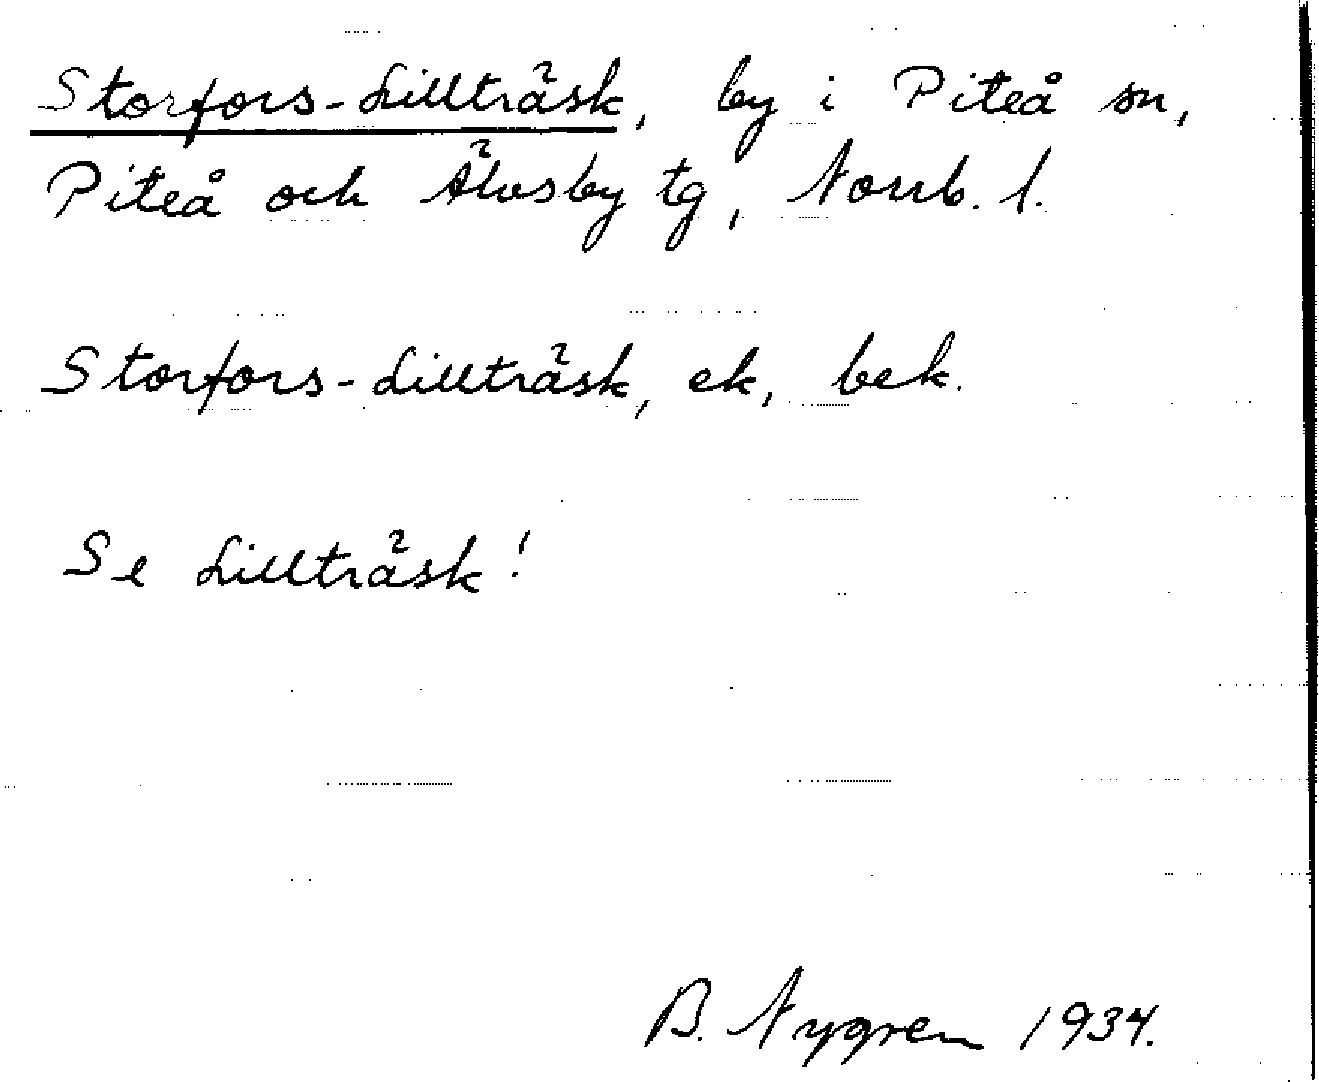 Storfors-Lillträsk, by i Piteå sn,
Piteå och Älvsby tg, Norrb. l.
Storfors-Lillträsk, ek, bek.
Se Lillträsk!
B. Nygren 1934.